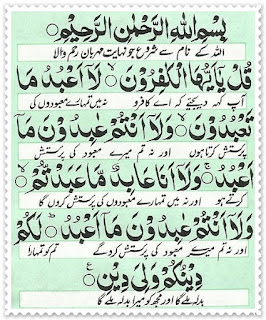 بِسْمِ اللهِ الرَّحْمٰنِ الرَّحِيْمِ
اللہ کے نام سے شروع جو نہایت مہربان رحم والا
قُلْ يٰٓاَيُّهَا الْكٰفِرُوْنَ ۙ لَآ اَعْبُدُ مَا
آپ کہہ دیجئے کہ اے کافرو نہ میں تمہارے معبودوں کی
تَعْبُدُوْنَ ۙ وَلَآ اَنْتُمْ عٰبِدُوْنَ مَآ
پرستش کرتا ہوں اور نہ تم میرے معبود کی پرستش
اَعْبُدُ ۚ وَلَآ اَنَا عَابِدٌ مَّا عَبَدْتُّمْ ۙ
کرتے ہو اور نہ میں تمہارے معبودوں کی پرستش کروں گا
وَلَآ اَنْتُمْ عٰبِدُوْنَ مَآ اَعْبُدُ ؕ لَكُمْ
اور نہ تم میرے معبود کی پرستش کرو گے تم کو تمہارا
دِيْنُكُمْ وَلِيَ دِيْنِ ع
بدلہ ملے گا اور مجھ کو میرا بدلہ ملے گا